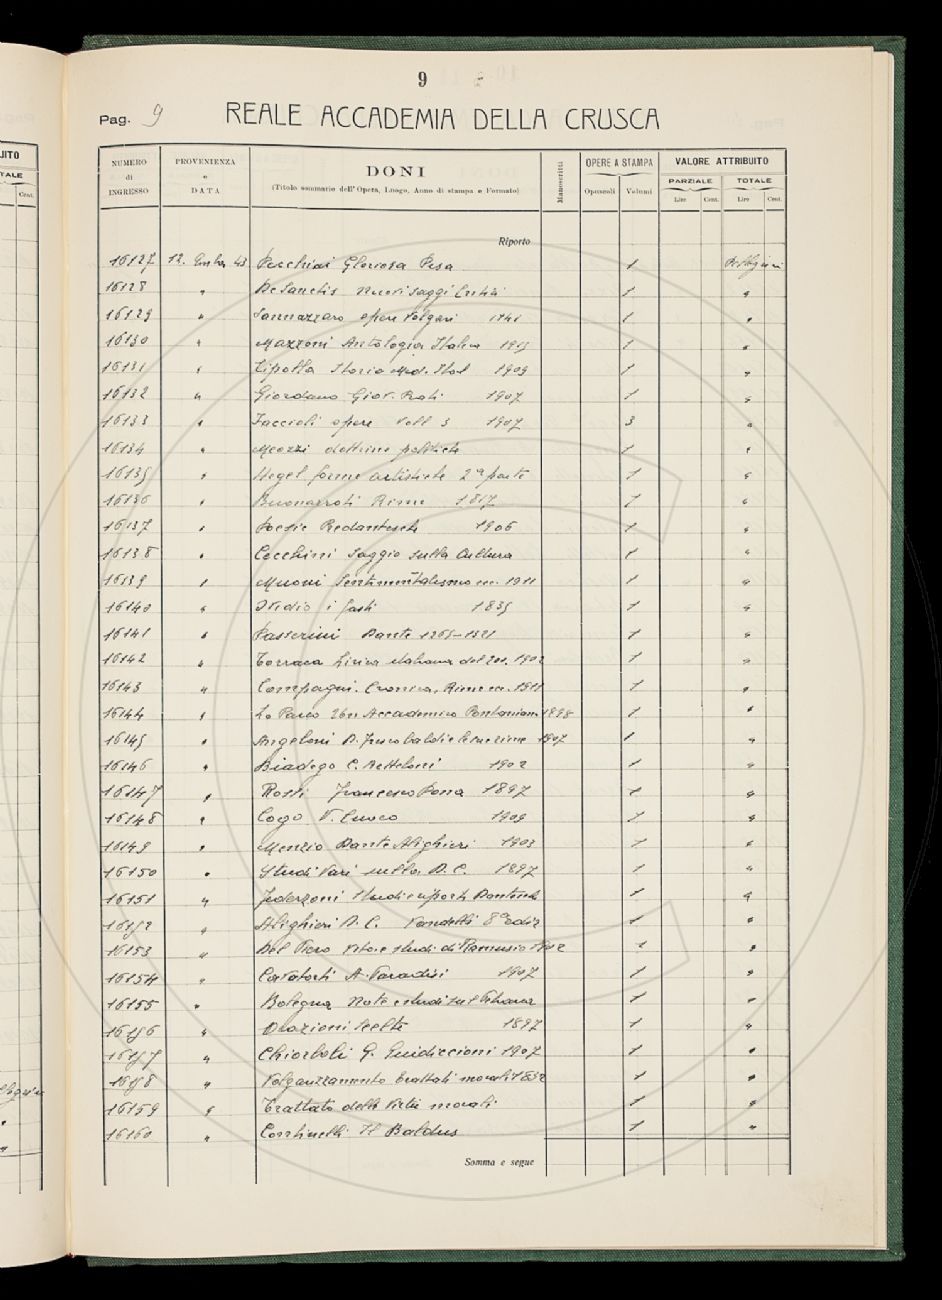 9
Pag. 9 REALE ACCADEMIA DELLA CRUSCA
NUMERO di INGRESSO
PROVENIENZA e DATA
DONI
(Titolo sommario dell'Opera, Luogo, Anno di stampa e Formato)
Manoscritti
OPERE A STAMPA
Opuscoli Volumi
VALORE ATTRIBUITO
PARZIALE TOTALE
Lire Cent. Lire Cent.
Riporto
16127 12. 43 Pecchiai Gloriosa Pisa 1
16128 " De Sanctis Nuovi saggi Critici 1 "
16129 " Sannazzaro opere volgari 1741 1 "
16130 " Mazzoni Antologia Italica 1 "
16131 " Cipolla Storia Med. Ital 1909 1 "
16132 " Giordano Giov. Prati 1907 1 "
16133 " Faccioli opere Voll 3 1907 3 "
16134 " Meozzi dottrine politiche 1 "
16135 " Hegel forme artistiche 2ª parte 1 "
16136 " Buonarroti Rime 1817 1 "
16137 " Poesie Predantesche 1906 1 "
16138 " Cecchini Saggio sulla Cultura 1 "
16139 " Muoni Sentimentalismo ecc. 1911 1 "
16140 " Ovidio i fasti 1835 1 "
16141 " Passerini Dante 1265-1321 1 "
16142 " Torraca Lirica italiana del 200. 1902 1 "
16143 " Compagni. Cronica, Rime ecc. 1911 1 "
16144 " Lo Parco Accademico Pontaniano 1898 1 "
16145 " Angeloni D. Frescobaldi e le sue rime 1907 1 "
16146 " Biadego C. Betteloni 1902 1 "
16147 " Rossi Francesco Pona 1897 1 "
16148 " Cogo V. Cuoco 1909 1 "
16149 " Menzio Dante Alighieri 1903 1 "
16150 " Studi Vari sulla D. C. 1897 1 "
16151 " Federzoni Studi e diporti Danteschi 1 "
16152 " Alighieri D. C. Vandelli 8ª ediz 1 "
16153 " Del Piero Vita e studi di Ramusio 1902 1 "
16154 " A. Paradisi 1907 1 "
16155 " Bologna Note e studi sul Petrarca 1 "
16156 " Orazioni scelte 1897 1 "
16157 " Chiorboli G. Guidiccioni 1907 1 "
16158 " Volgarizzamento trattati morali 1832 1 "
16159 " Trattato delle Virtù morali 1 "
16160 " Cortinelli Il Baldus 1 "
Somma e segue